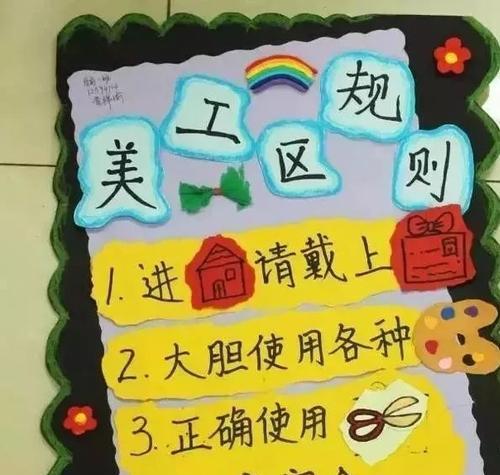 美工区规则
1.进请戴上
2.大胆使用各种
3.正确使用